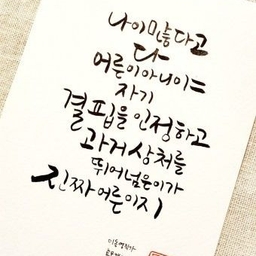 나이 많다고
다
어른이 아니이
자기
결핍을 인정하고
과거 상처를
뛰어넘은이가
진짜 어른이지